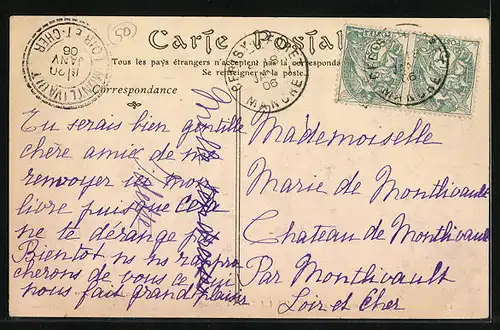 50
Carte Postale
Tous les pays étrangers n'acceptent pas la correspondance
Se renseigner à la poste.
Correspondance
MONTLIVAULT
LOIR-ET-CHER
JANV
06
PERCY
MANCHE
06
Tu serais bien gentille
chère amie de me
renvoyer mon
livre puisque cela
ne te dérange pas
Bientôt ns ns rappro
cherons de vous ce qui
nous fait grand plaisir
Mademoiselle
Marie de Montlivault
Chateau de Montlivault
Par Montlivault
Loir et Cher